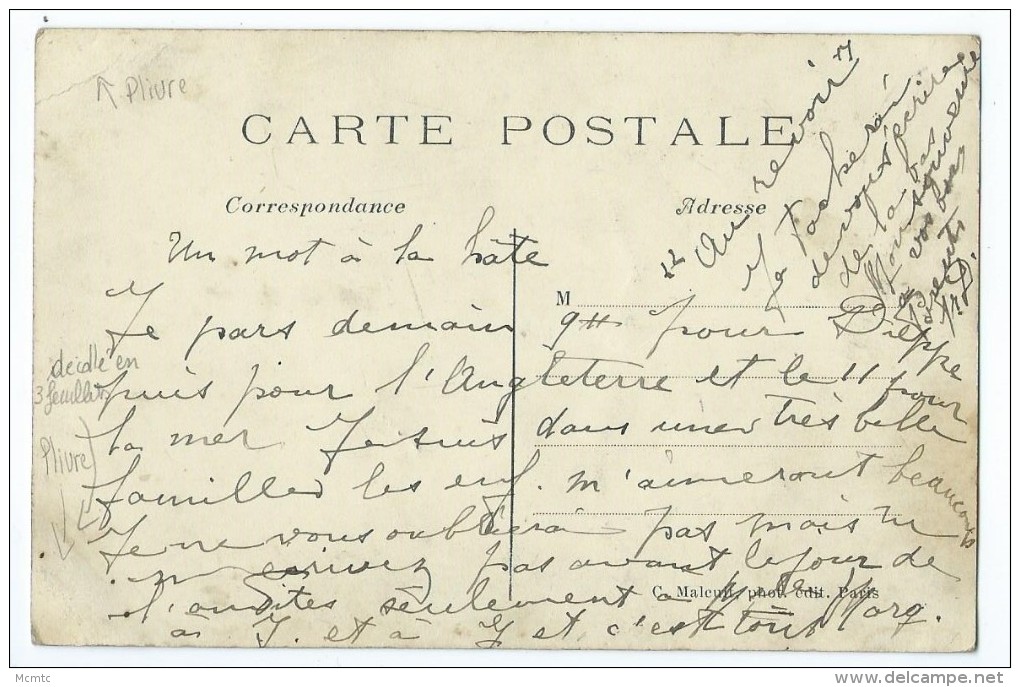 ↑ Plivre
CARTE POSTALE
Correspondance
Adresse
Un mot à la hâte
M
Je pars demain 9H pour Dieppe
puis pour l'Angleterre et le 11 pour
la mer Je suis dans une très belle
famille les enf. m'aimeront beaucoup
Je ne vous oublierai pas mais ne
m'écrivez pas avant le jour de
l'an dites seulement à Marg.
à J. et à Y et c'est tout
C. Maleuit, phot. édit. Paris
"Au revoir"
Je tacherai
de vous écrire
de la bas
Mon souvenir
à vos bons
parents
décollé en
3 feuillets
Plivre
Mcmtc
www.delcampe.net